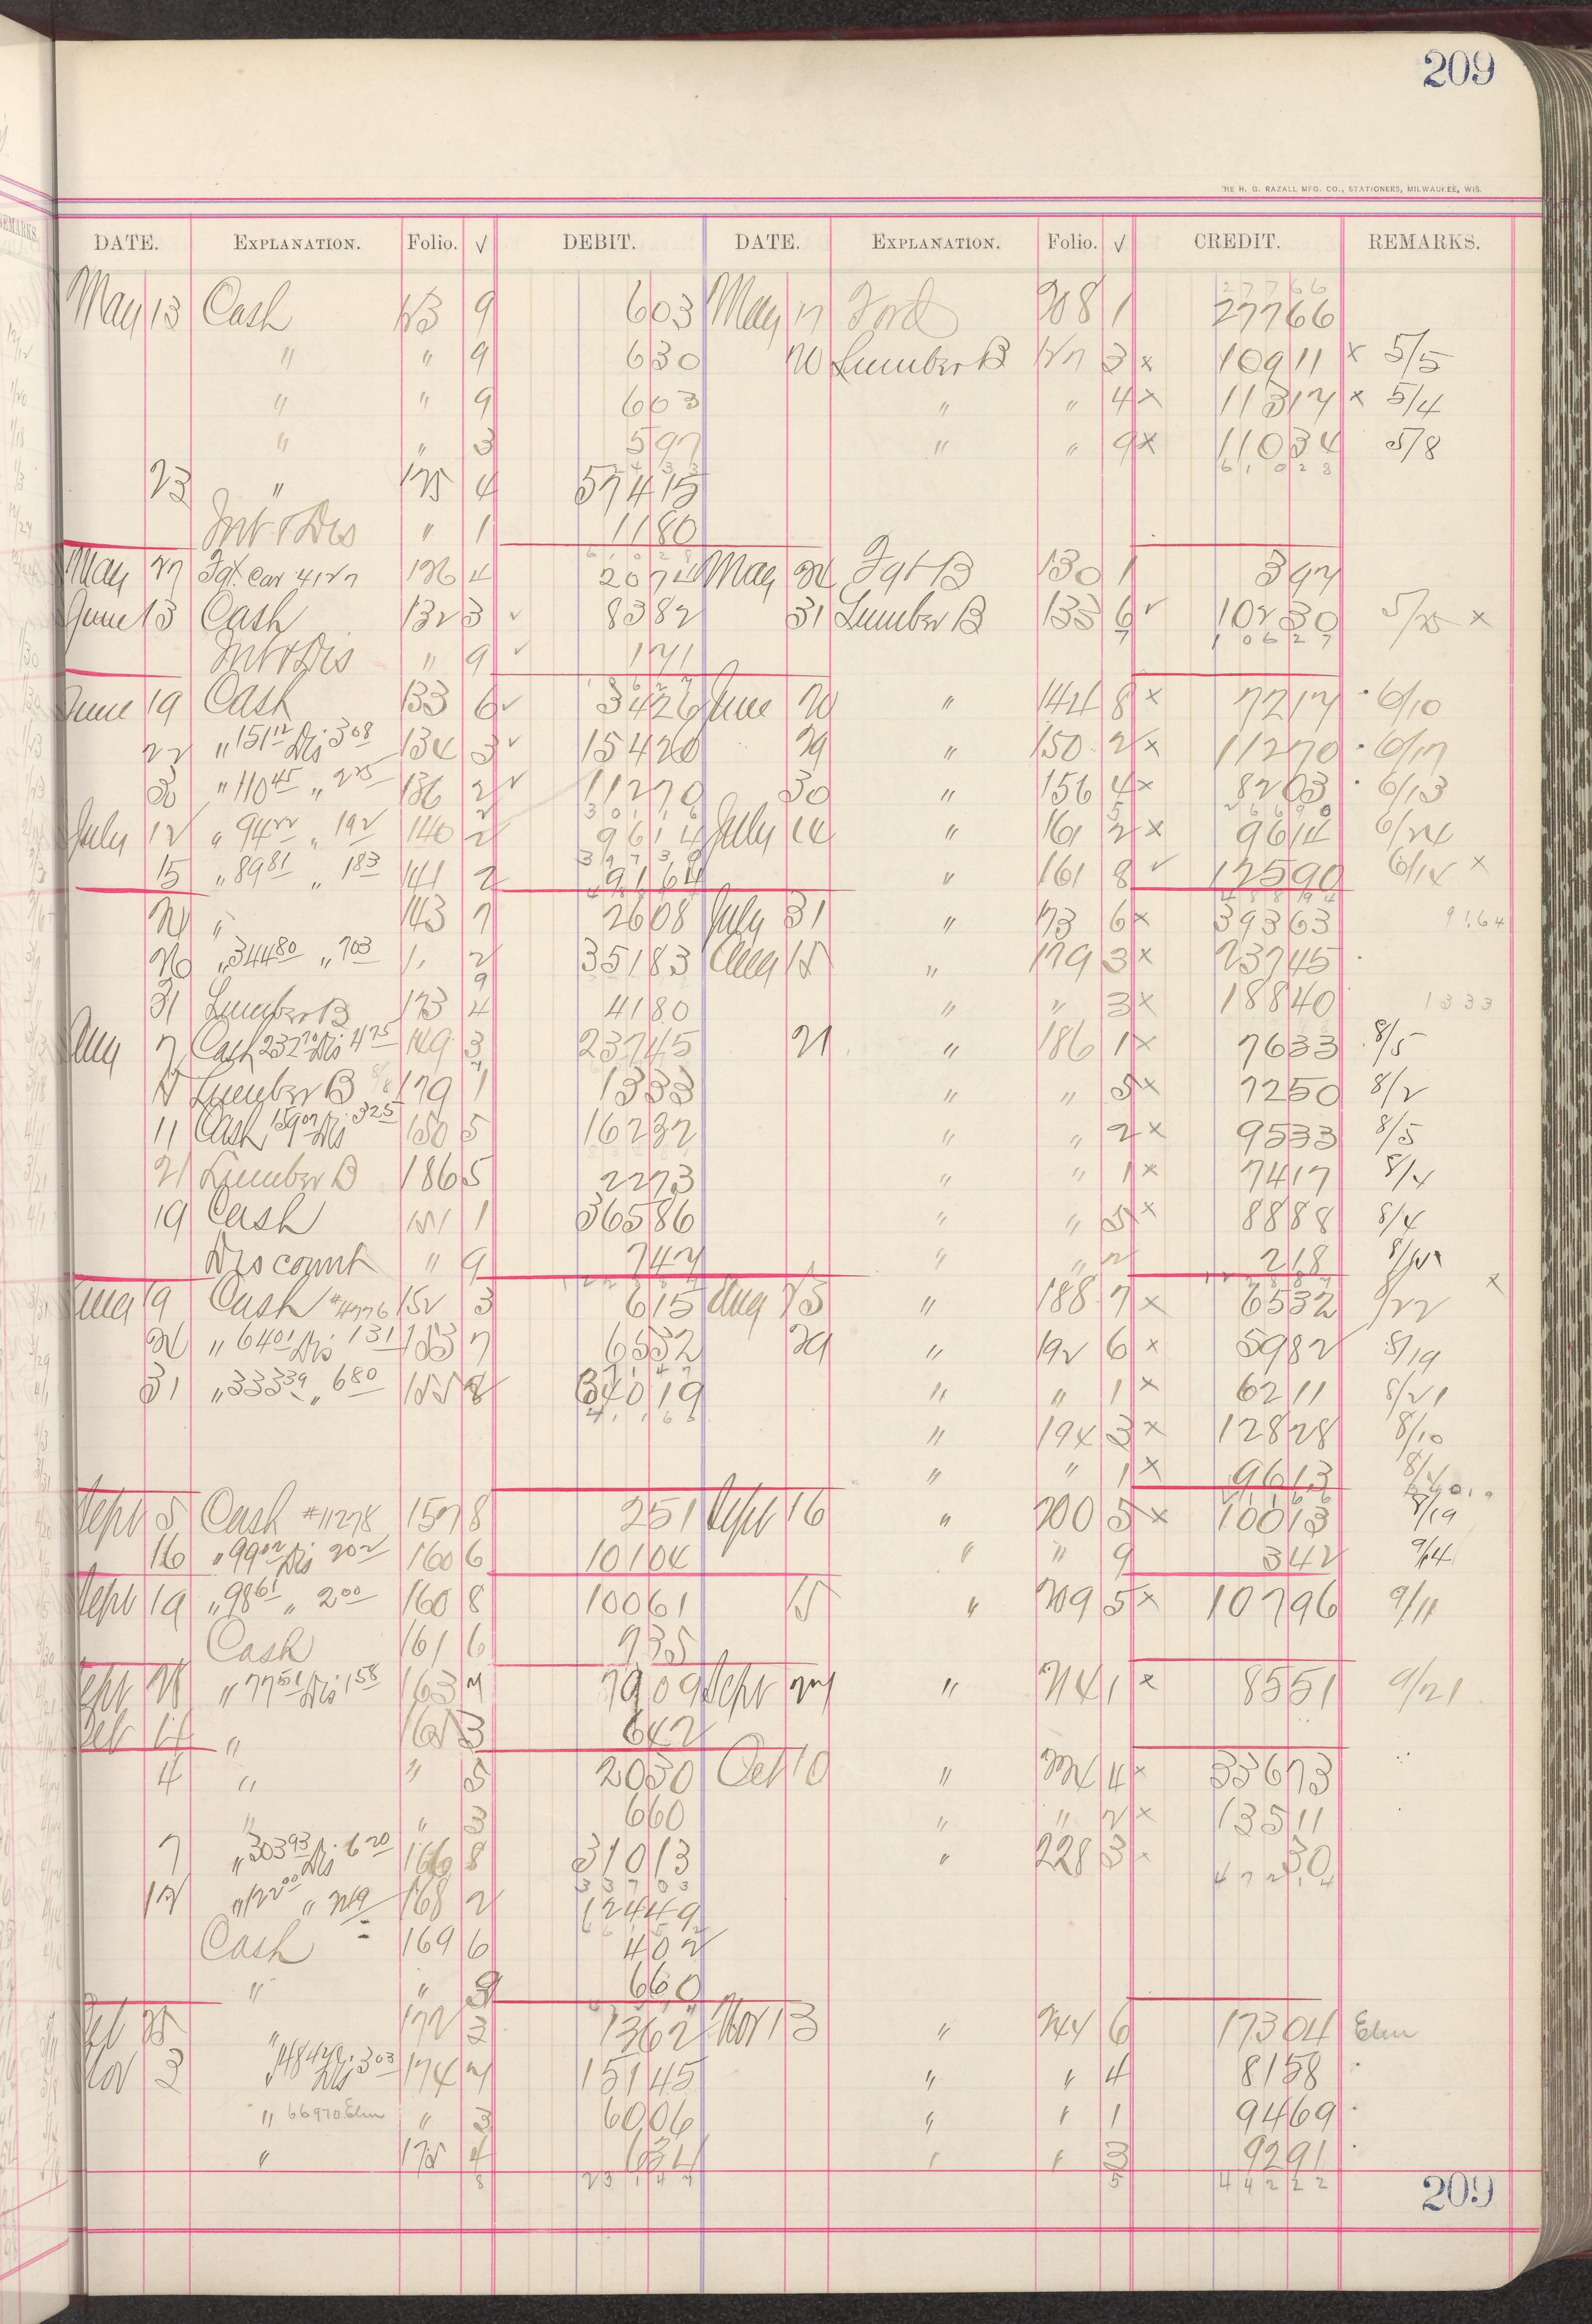 209
THE H. G. RAZALL MFG. CO., STATIONERS, MILWAUKEE, WIS.
DATE. EXPLANATION. Folio. √ DEBIT. DATE. EXPLANATION. Folio. √ CREDIT. REMARKS.
May 13 Cash 123 9 603 May 17 Ford 208 1 27766
" " 9 630 20 Lumber B 127 3 x 10911 x 5/5
" " 9 603 " " 4 x 11317 x 5/4
" " 3 597 " " 9 x 11034 5/8
23 " 125 4 57415 61028
Int & Dis " 1 1180
May 27 Fgt. Car 4127 126 4 2074 May 24 Fgt B 130 1 397
June 13 Cash 132 3 √ 8382 31 Lumber B 133 6 √ 10230 5/25 x
Int & Dis " 9 √ 171 10627
June 19 Cash 133 6 √ 3426 June 20 " 144 8 x 7217 6/10
22 " 151 12 Dis 3 08 134 3 √ 15420 29 " 150 2 x 11270 6/17
30 " 110 45 " 2 25 136 2 √ 11270 30 " 156 4 x 8203 6/13
July 12 " 94 22 " 1 92 140 2 9614 July 14 " 161 2 x 9614 6/24
15 " 89 81 " 1 83 141 2 9164 " 161 8 √ 12590 6/14 x
20 " 143 7 2608 July 31 " 173 6 x 39363 9164
26 " 344 80 " 7 03 " 2 35183 Aug 15 " 179 3 x 23745
31 Lumber B 173 4 4180 " " 3 x 18840 1333
Aug 7 Cash 232 70 Dis 4 75 149 3 23745 21 " 186 1 x 7633 8/5
15 Lumber B 8/8 179 1 1333 " " 5 x 7250 8/2
11 Cash 159 07 Dis 3 25 150 5 16232 " " 2 x 9533 8/5
21 Lumber B 186 5 2273 " " 1 x 7417 8/4
19 Cash 151 1 36586 " " 5 x 8888 8/4
Discount " 9 747 " " 2 218
Aug 19 Cash #4776 152 3 615 Aug 23 " 188 7 x 6532 8/22 x
24 " 64 01 Dis 1 31 153 7 6532 29 " 192 6 x 5982 8/19
31 " 333 39 " 6 80 155 8 34019 " " 1 x 6211 8/21
41166 " 194 3 x 12828 8/10
" " 1 x 9613
Sept 5 Cash #11278 157 8 251 Sept 16 " 200 5 x 10013 8/19
16 " 99 02 Dis 2 02 160 6 10104 " " 9 342 9/4
Sept 19 " 98 61 " 2 00 160 8 10061 15 " 209 5 x 10796 9/11
Cash 161 6 735
Sept 28 " 77 51 Dis 1 58 163 7 7909 Sept 27 " 214 1 x 8551 9/21
Oct 4 " 165 3 642
4 " " 5 2030 Oct 10 " 224 4 x 33673
" " 3 660 " " 2 x 13511
7 " 303 93 Dis 6 20 166 8 31013 " 228 3 30
12 " 122 00 " 2 49 168 2 12449 47214
Cash 169 6 402
" " 9 660
Oct 25 " 172 3 1362 Nov 13 " 244 6 17304 Elm
Nov 3 " 148 42 Dis 3 03 174 7 15145 " " 4 8158
" 66970 Elm " 3 6006 " " 1 9469
" 175 4 634 " " 3 9291
8 23147 5 44222
209